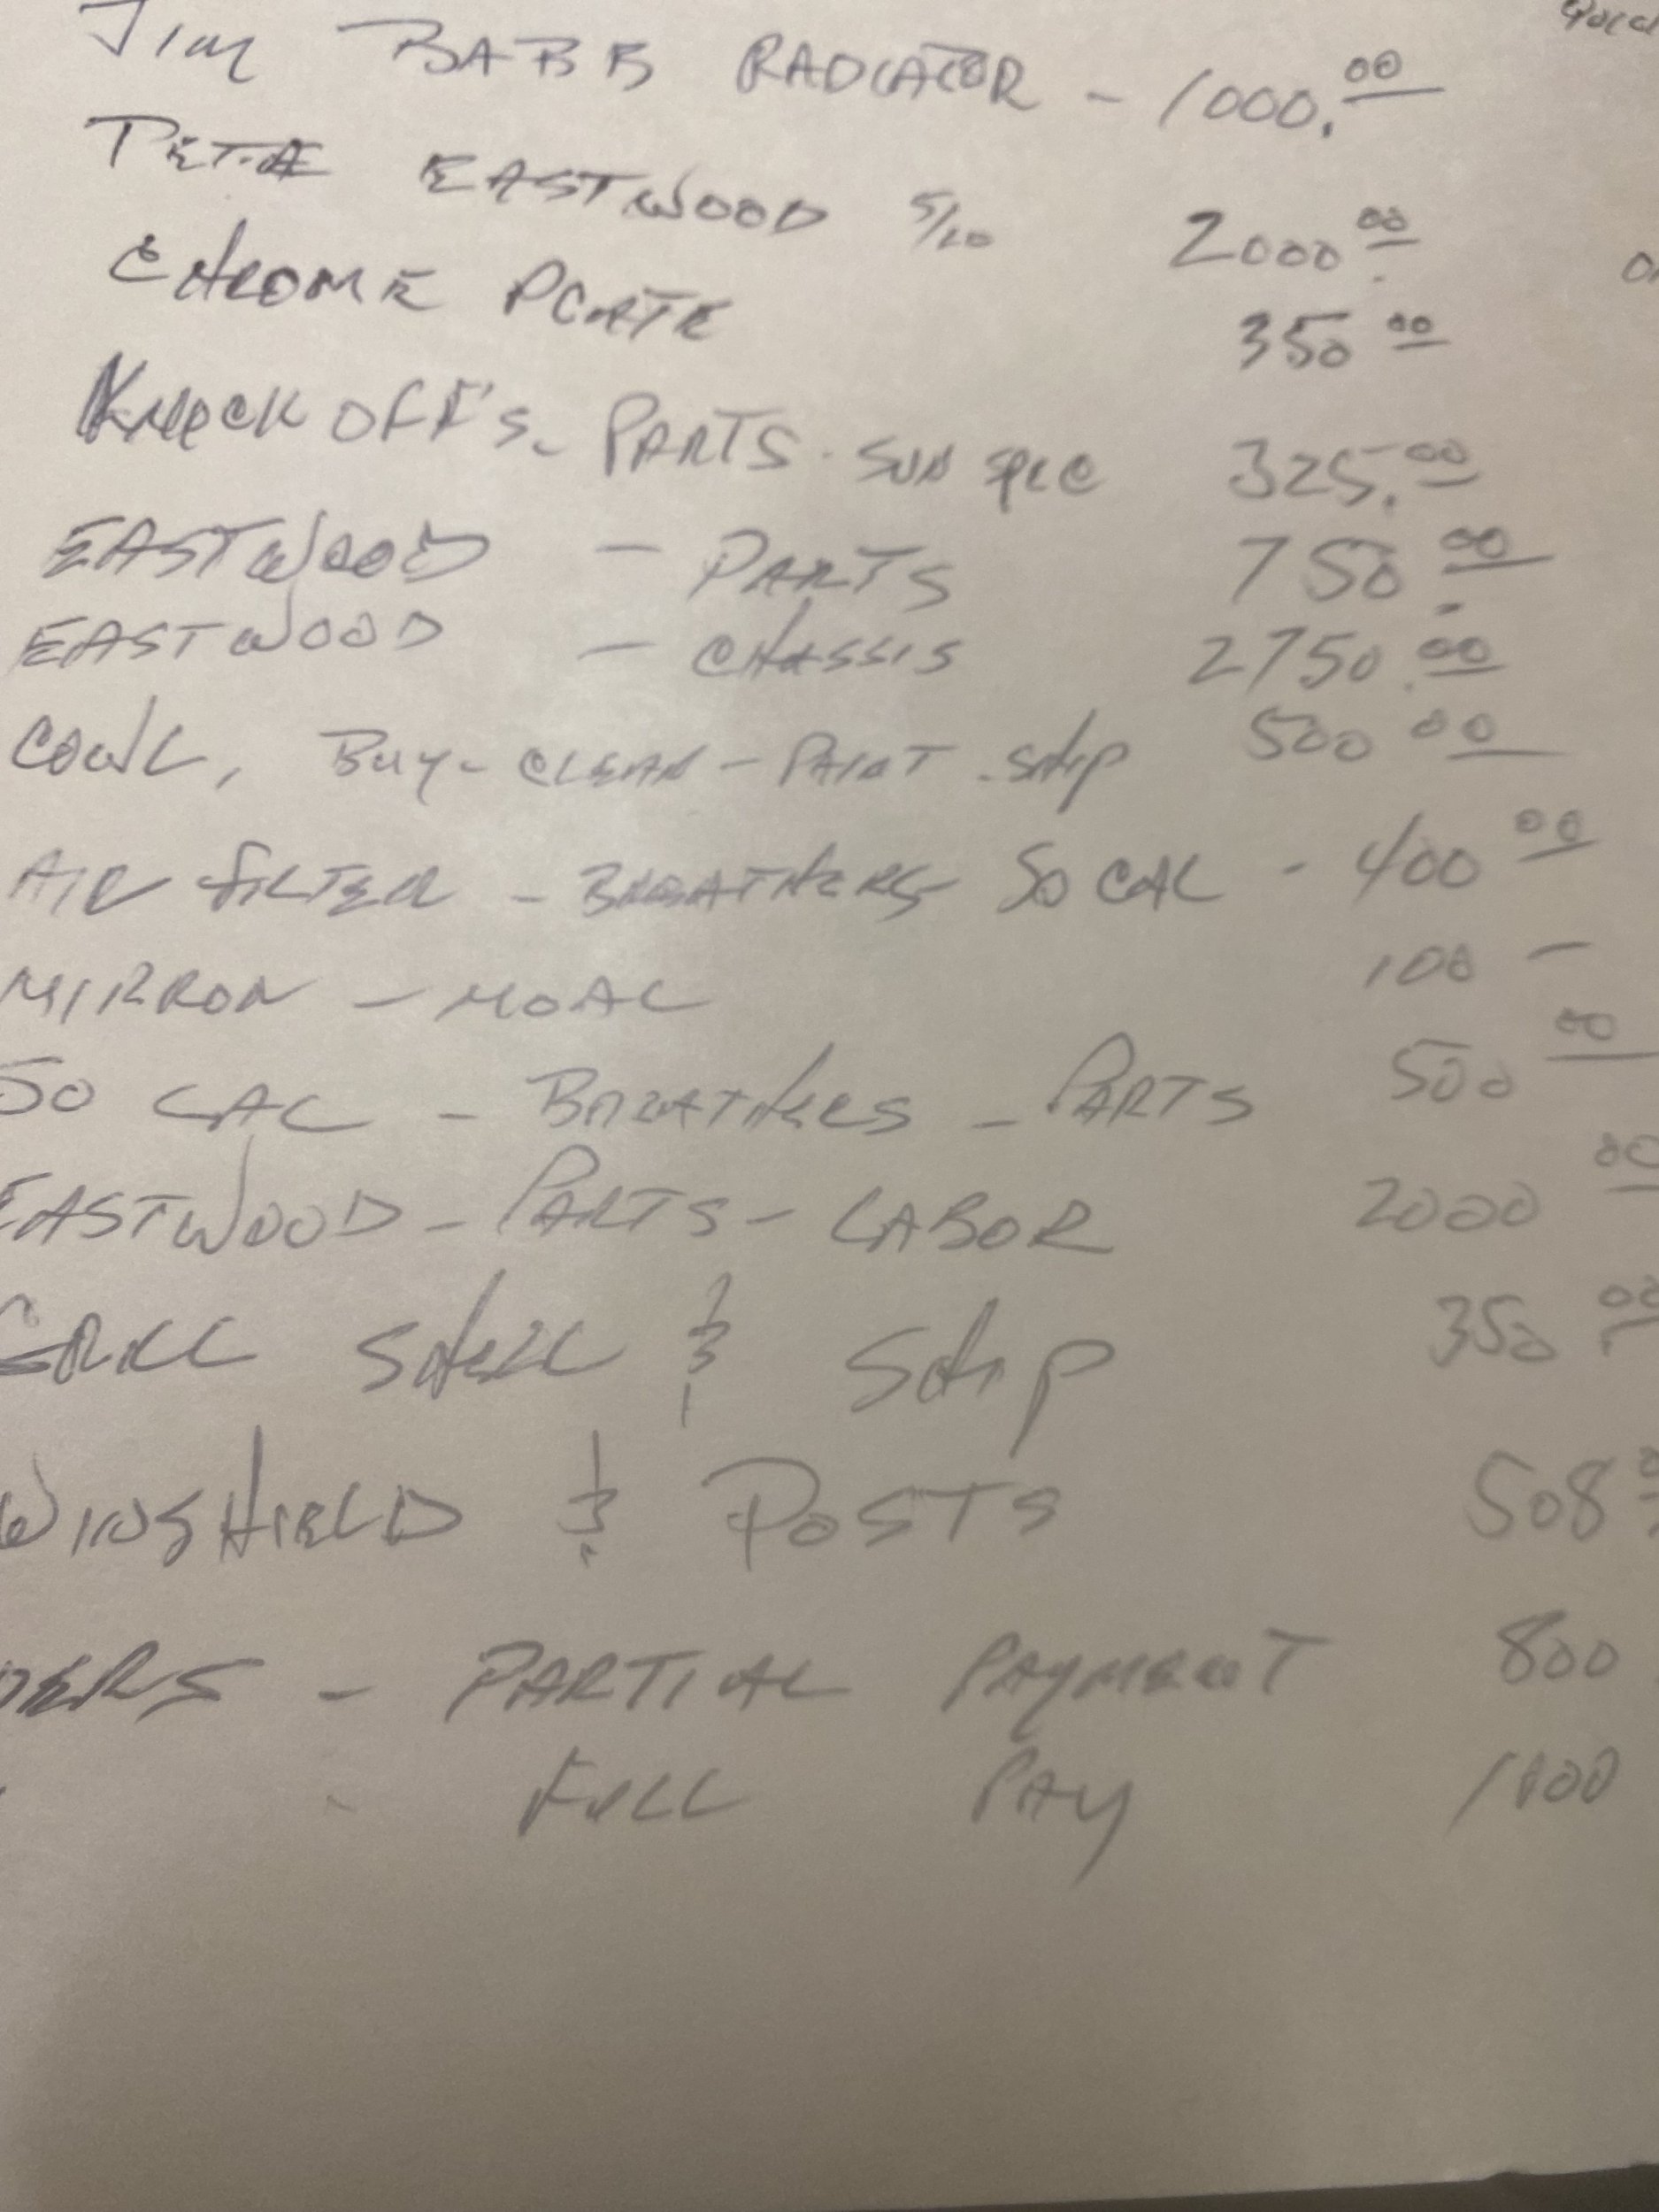 Jim BABB RADIATOR - 1000.00
PETE EASTWOOD 5/10 2000 00
CHROME PLATE 350 00
KNOCK OFF'S - PARTS - SUN SPEC 325.00
EASTWOOD - PARTS 750.00
EASTWOOD - CHASSIS 2750.00
COWL, BUY - CLEAN - PAINT - SHIP 500 00
AIR FILTER - BREATHERS SO CAL - 400 00
MIRROR - MOAL 100 -
SO CAL - BREATHERS - PARTS 500 00
EASTWOOD - PARTS - LABOR 2000 00
GRILL SHELL & SHIP 350.00
WINSHIELD & POSTS 508
DERS - PARTIAL PAYMENT 800
FULL PAY